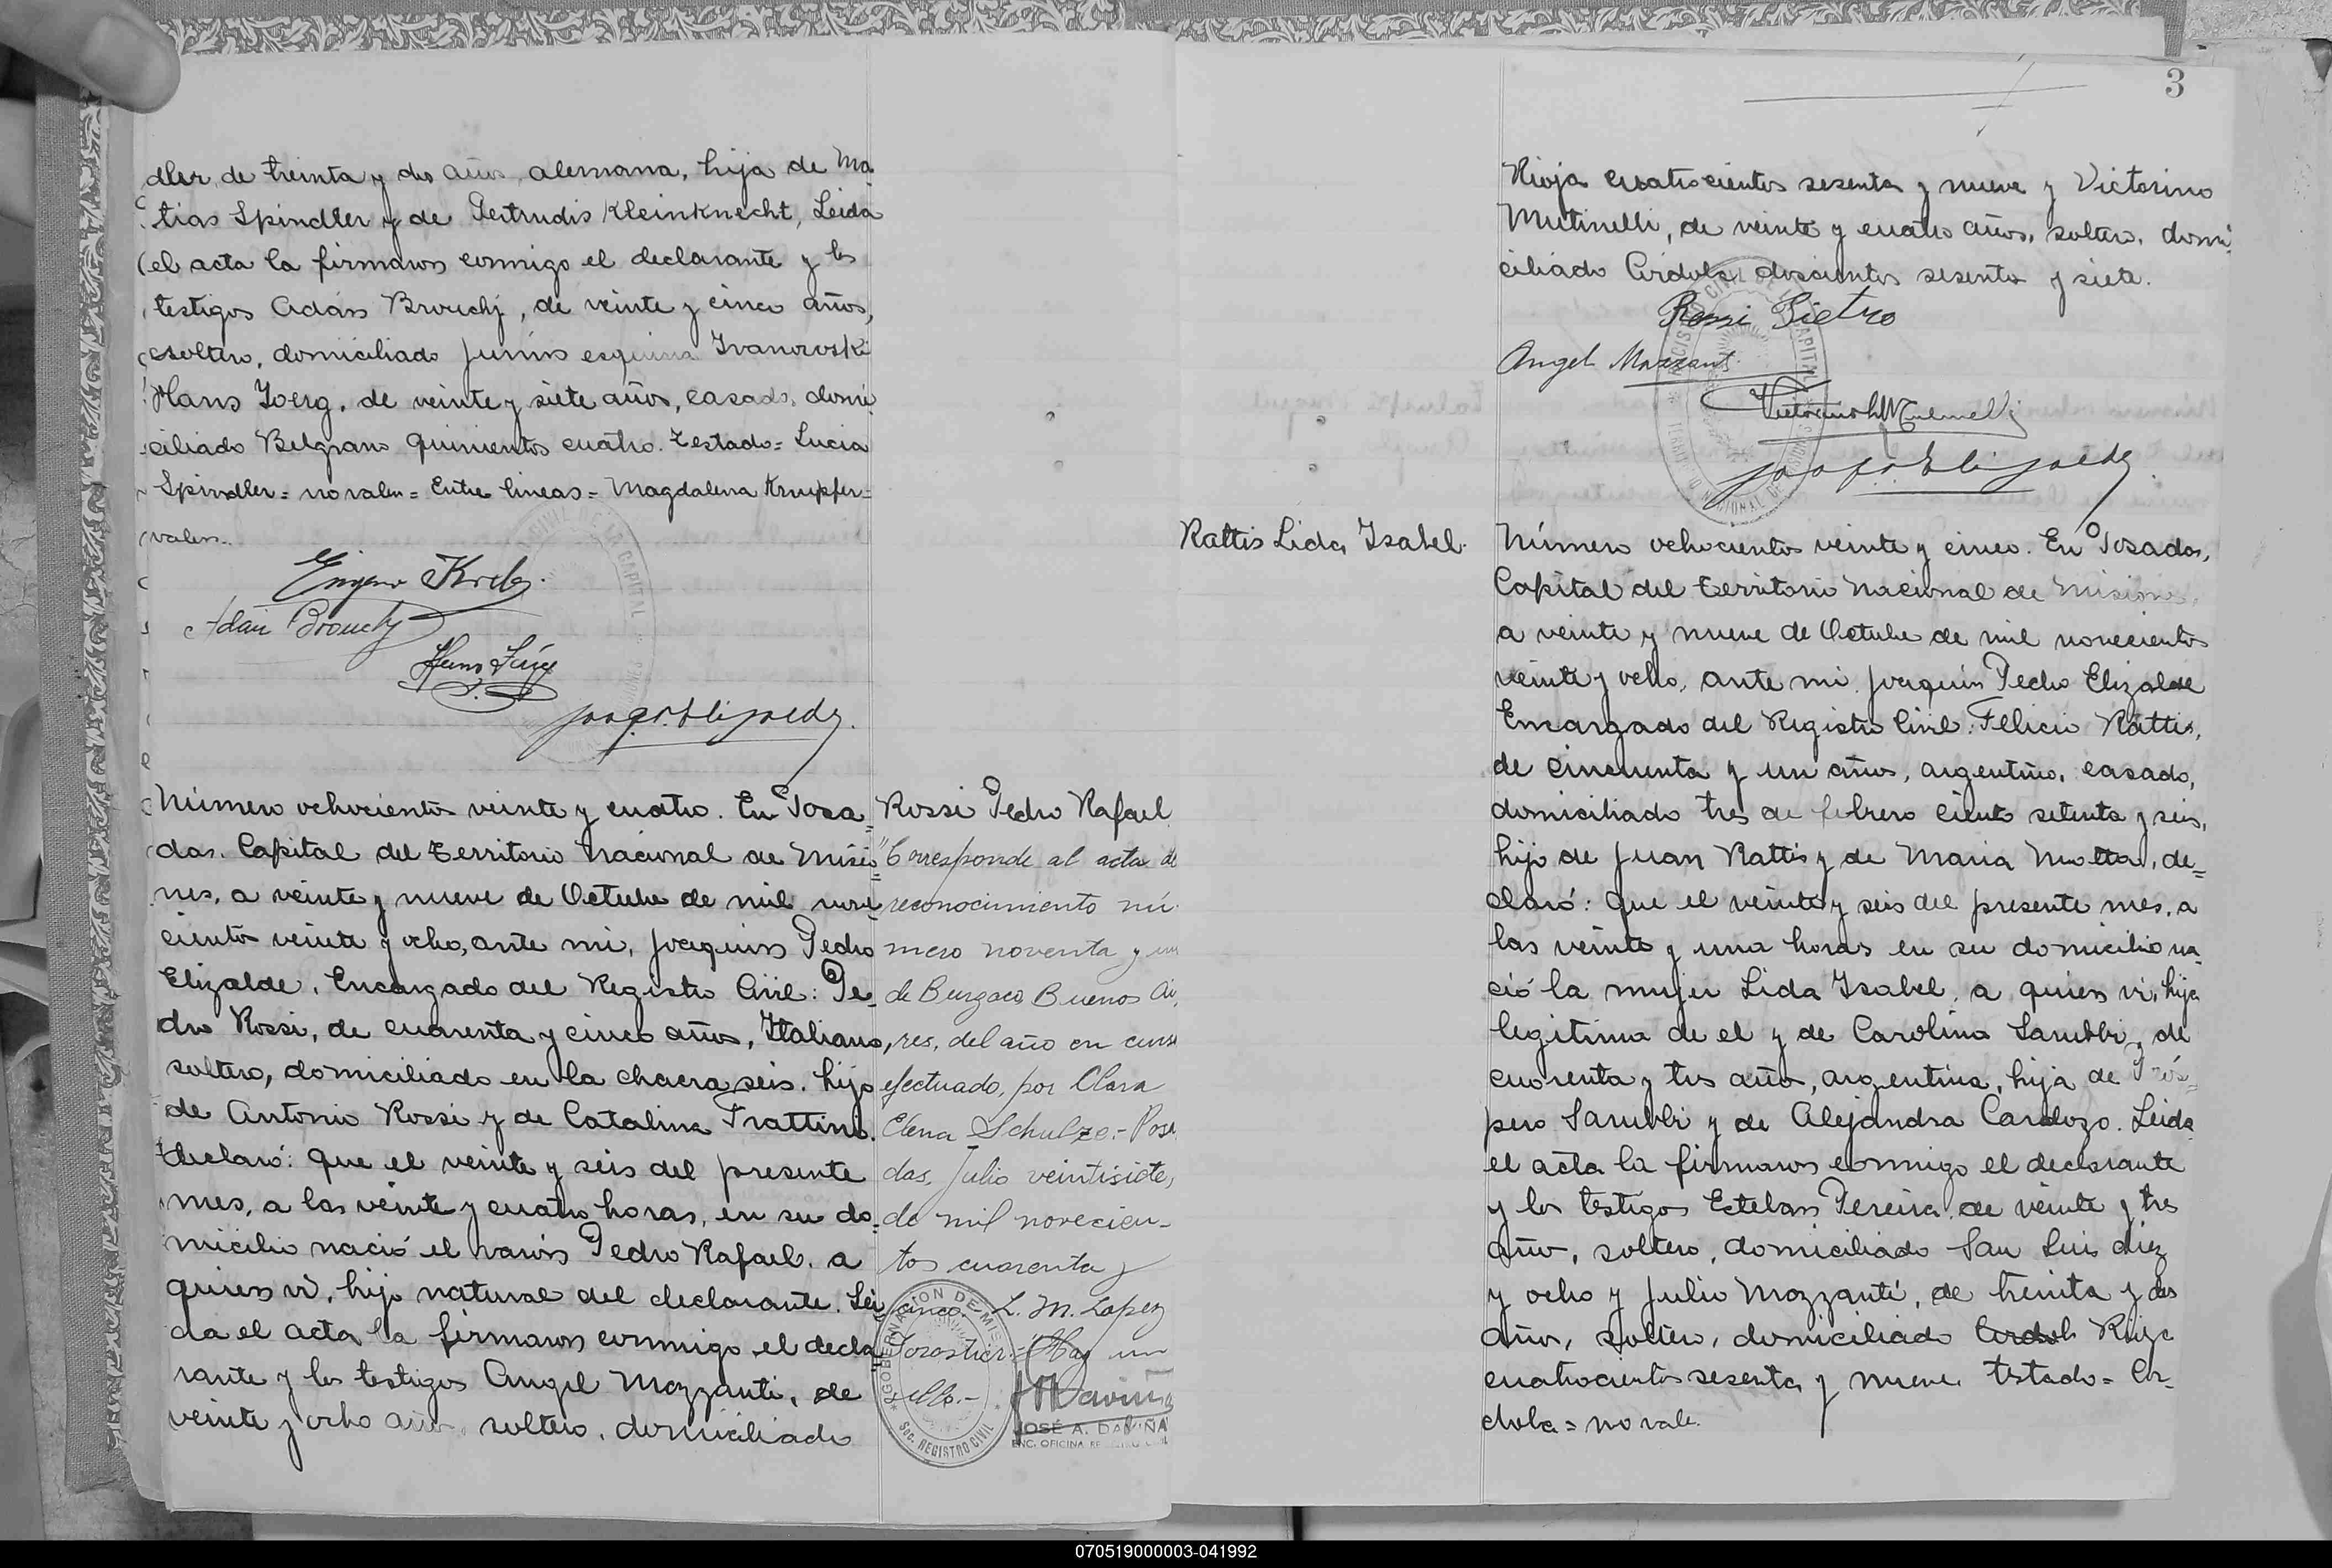 dler, de treinta y dos años, alemana, hija de Ma
tias Spindler y de Gertrudis Kleinknecht, Leida
el acta la firmaron conmigo el declarante y los
testigos Adán Brouchy, de veinte y cinco años,
soltero, domiciliado Junin esquina Ivanowski
Hans Joerg, de veinte y siete años, casado, domi
ciliado Belgrano quinientos cuatro. Testado= Lucia
Spindler= no valen= Entre lineas= Magdalena Krupfer=
valen.
Eugen Kreb
Adán Brouchy
Hans Jörg
Joaq. P. Elizalde.
Número ochocientos veinte y cuatro. En Posa=
das. Capital del Territorio Nacional de Misio=
nes, a veinte y nueve de Octubre de mil nove
cientos veinte y ocho, ante mi, Joaquin Pedro
Elizalde. Encargado del Registro Civil: Pe=
dro Rossi, de cuarenta y cinco años, Italiano,
soltero, domiciliado en la chacra seis. hijo
de Antonio Rossi y de Catalina Frattini.
declaró: que el veinte y seis del presente
mes, a las veinte y cuatro horas, en su do=
micilio nació el varón Pedro Rafael. a
quien ví, hijo natural del declarante. Lei
da el acta la firmaron conmigo el decla
rante y los testigos Angel Mozzanti, de
veinte y ocho años, soltero, domiciliado
Rossi Pedro Rafael
"Corresponde al acta de
reconocimiento nú
mero noventa y un
de Burzaco Buenos Ai,
res, del año en curso
efectuado, por Clara
Elena Schulze.- Posa
das, Julio veintisiete,
de mil novecien-
tos cuarenta y
cinco.- L. M. Lopez
Forastier: Hay un
sello.-
GOBERNACION DE MIS
SOC. REGISTRO CIVIL
JOSÉ A. DAVIÑA
ENC. OFICINA REGISTRO CIVIL
3
Rioja cuatrocientos sesenta y nueve y Victorino
Mutinelli, de veinte y cuatro años, soltero, domi
ciliado Córdoba doscientos sesenta y siete.
Rossi Pietro
Angel Mozzanti
Victorino Mutinelli
Joaq. P. Elizalde
Rattis Lida Isabel.
Número ochocientos veinte y cinco. En Posadas,
Capital del Territorio Nacional de Misiones,
a veinte y nueve de Octubre de mil novecientos
veinte y ocho, ante mi Joaquin Pedro Elizalde
Encargado del Registro Civil: Felicio Rattis,
de cincuenta y un años, argentino, casado,
domiciliado tres de febrero ciento setenta y seis,
hijo de Juan Rattis y de Maria Motta, de=
claró: Que el veinte y seis del presente mes, a
las veinte y una horas en su domicilio na
ció la mujer Lida Isabel, a quien ví, hija
legitima de el y de Carolina Sarubbi, de
cuarenta y tres años, argentina, hija de Prós=
pero Sarubbi y de Alejandra Cardozo. Leida
el acta la firmaron conmigo el declarante
y los testigos Esteban Pereira, de veinte y tres
años, soltero, domiciliado San Luis diez
y ocho y Julio Mozzanti, de treinta y dos
años, soltero, domiciliado Cordob Rioja
cuatrocientos sesenta y nueve. Testado= Cor=
doba= no vale.
070519000003-041992